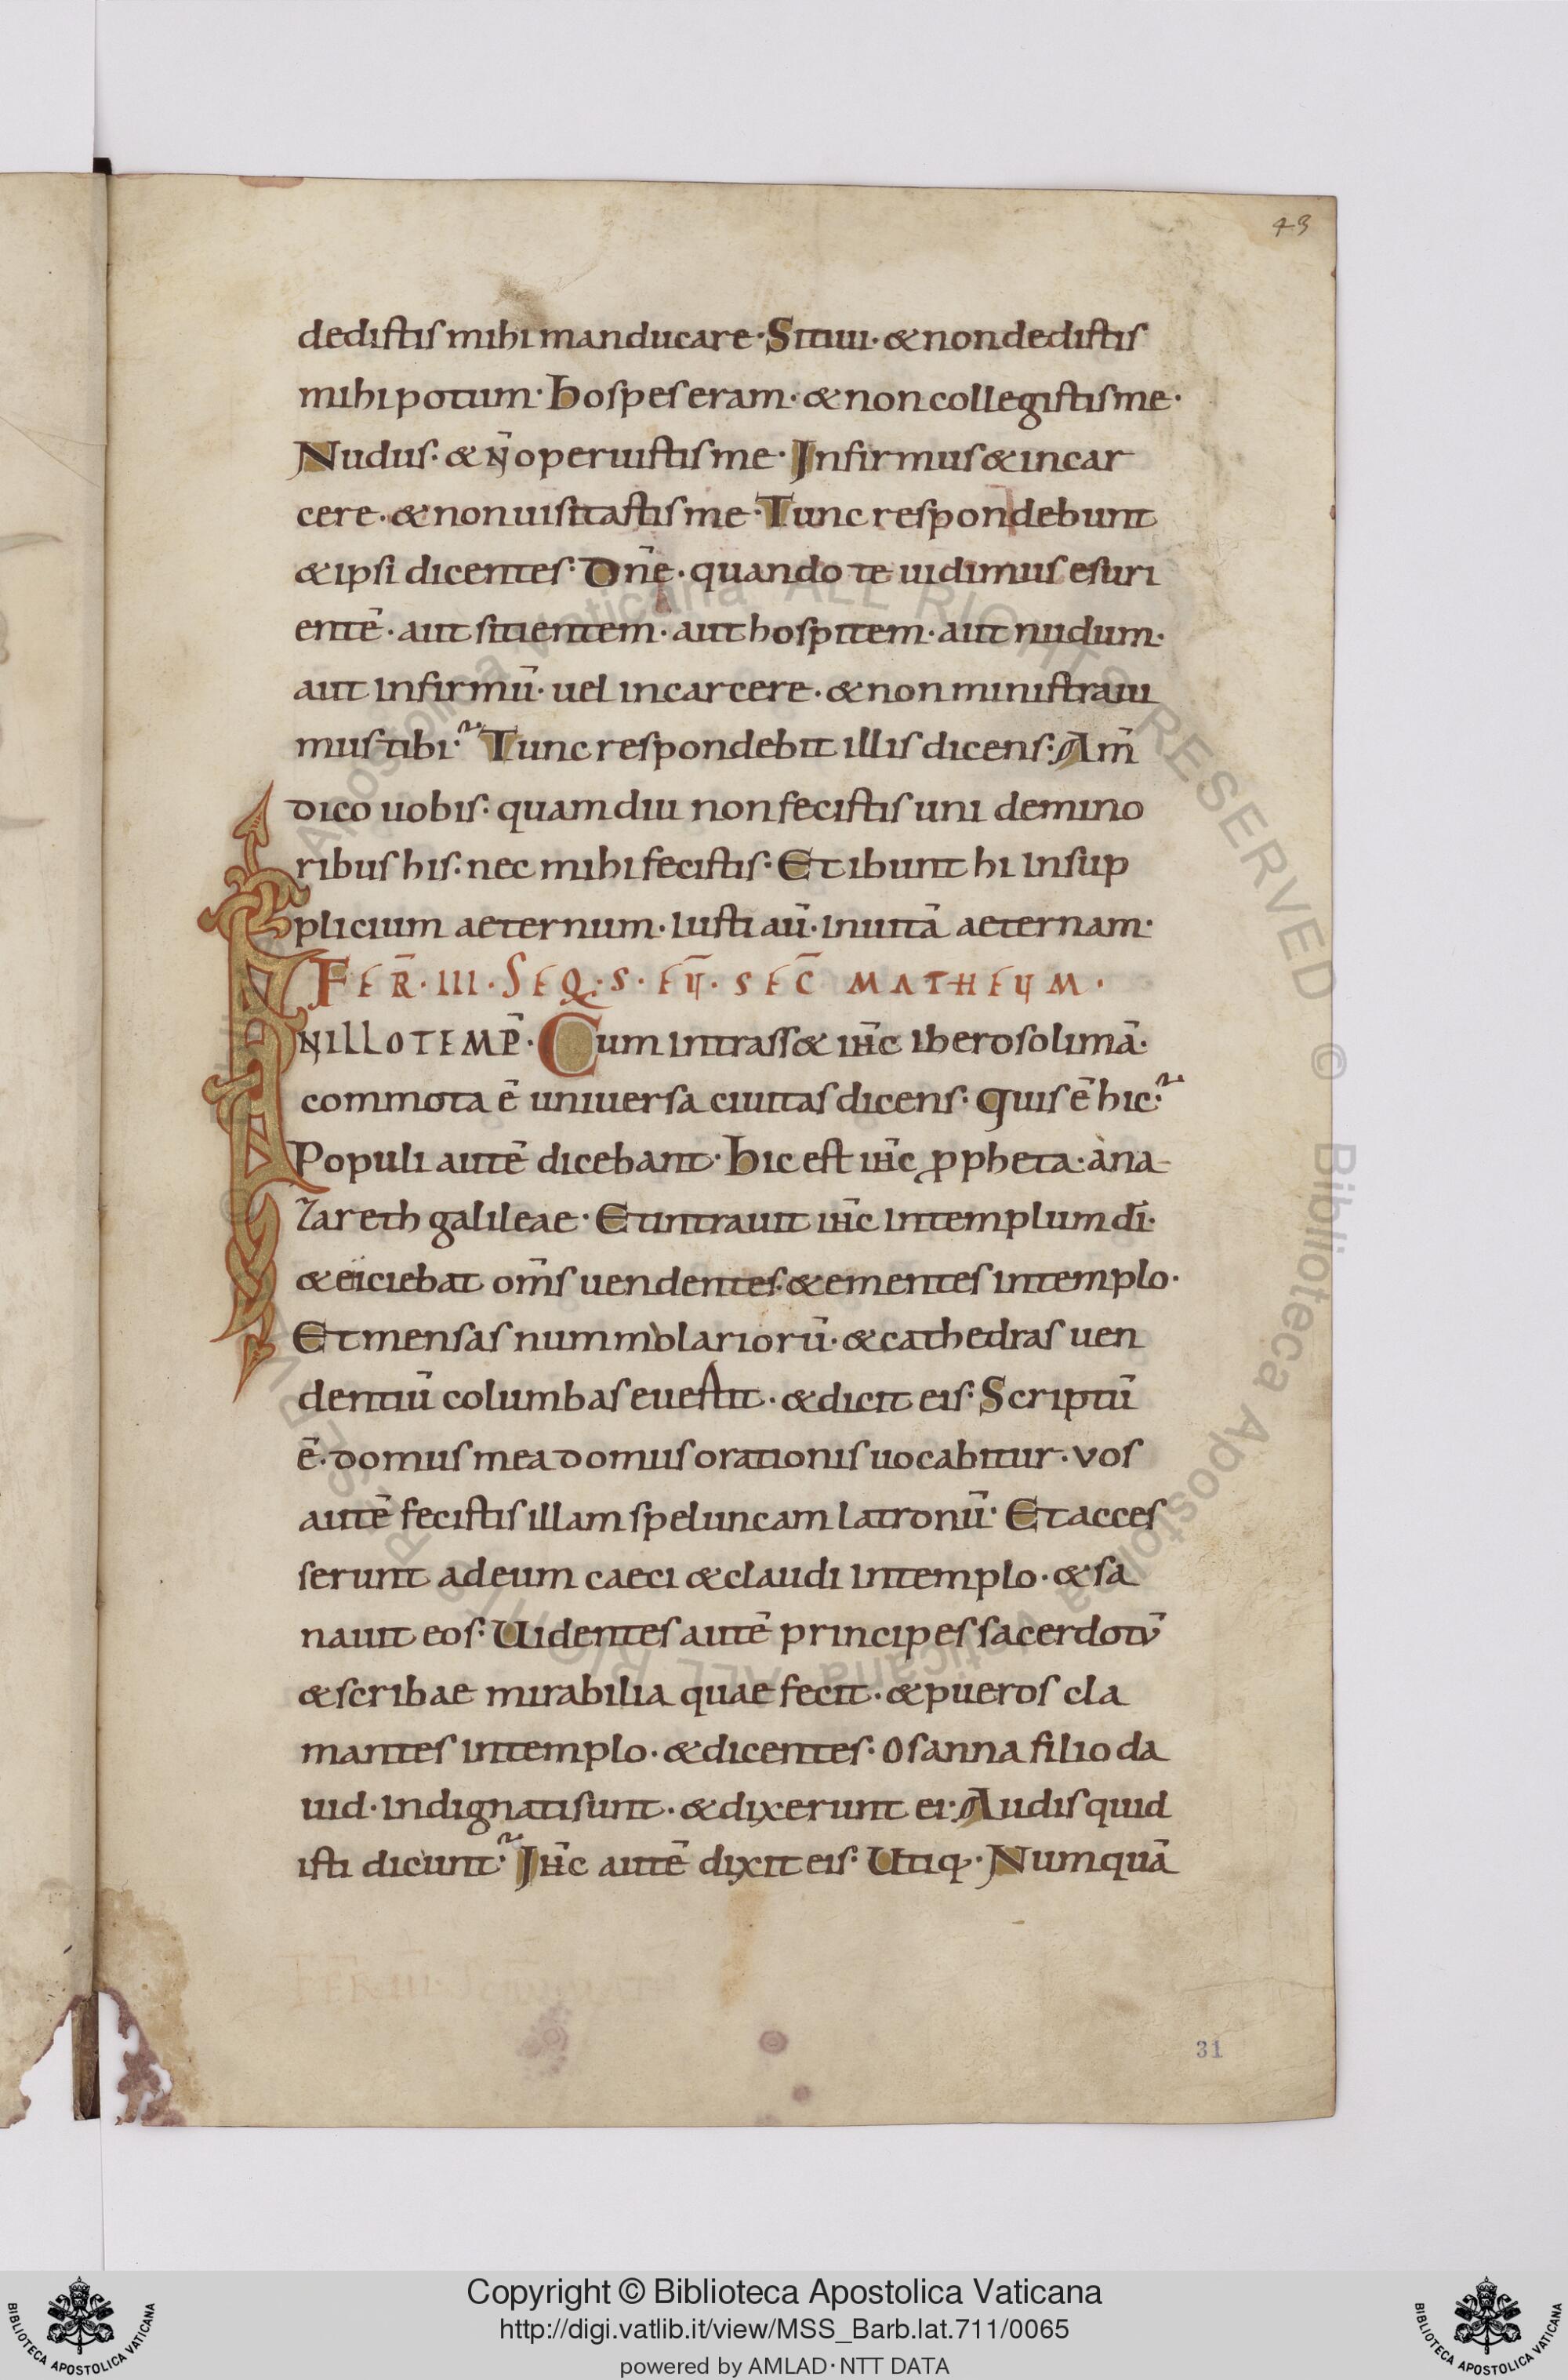 43
dedistis mihi manducare · Sitiui · & non dedistis
mihi potum · Hospes eram · & non collegistis me ·
Nudus · & n̄ operuistis me · Infirmus & in car
cere · & non uisitastis me · Tunc respondebunt
& ipsi dicentes · Dn̄e · quando te uidimus esuri
entē · aut sitientem · aut hospitem · aut nudum ·
aut infirmū · uel in carcere · & non ministraui
mus tibi? Tunc respondebit illis dicens · Am̄
dico uobis · quamdiu non fecistis uni de mino
ribus his · nec mihi fecistis · Et ibunt hi in sup
plicium aeternum · Iusti aū · in uitā aeternam ·
FER̄ · III · SEQ · S · EŪ · SEC̄ MATHEUM ·
IN ILLO TEMP̄ · Cum intrass& ih̄c iherosolimā ·
commota ē uniuersa ciuitas dicens · Quis ē hic?
Populi autē dicebant · Hic est ih̄c ꝓpheta · a na
zareth galileae · Et intrauit ih̄c in templum dī ·
& eiciebat om̄s uendentes & ementes in templo ·
Et mensas nummolariorū · & cathedras uen
dentiū columbas euertit · & dicit eis · Scriptū
ē · domus mea domus orationis uocabitur · vos
autē fecistis illam speluncam latronū · Et acces
serunt ad eum caeci & claudi in templo · & sa
nauit eos · Uidentes autē principes sacerdotū
& scribae mirabilia quae fecit · & pueros cla
mantes in templo · & dicentes · Osanna filio da
uid · indignati sunt · & dixerunt ei · Audis quid
isti dicunt? Ih̄c autē dixit eis · Utiq; · Numquā
31
Copyright © Biblioteca Apostolica Vaticana
http://digi.vatlib.it/view/MSS_Barb.lat.711/0065
powered by AMLAD · NTT DATA
BIBLIOTECA APOSTOLICA VATICANA
BIBLIOTECA APOSTOLICA VATICANA